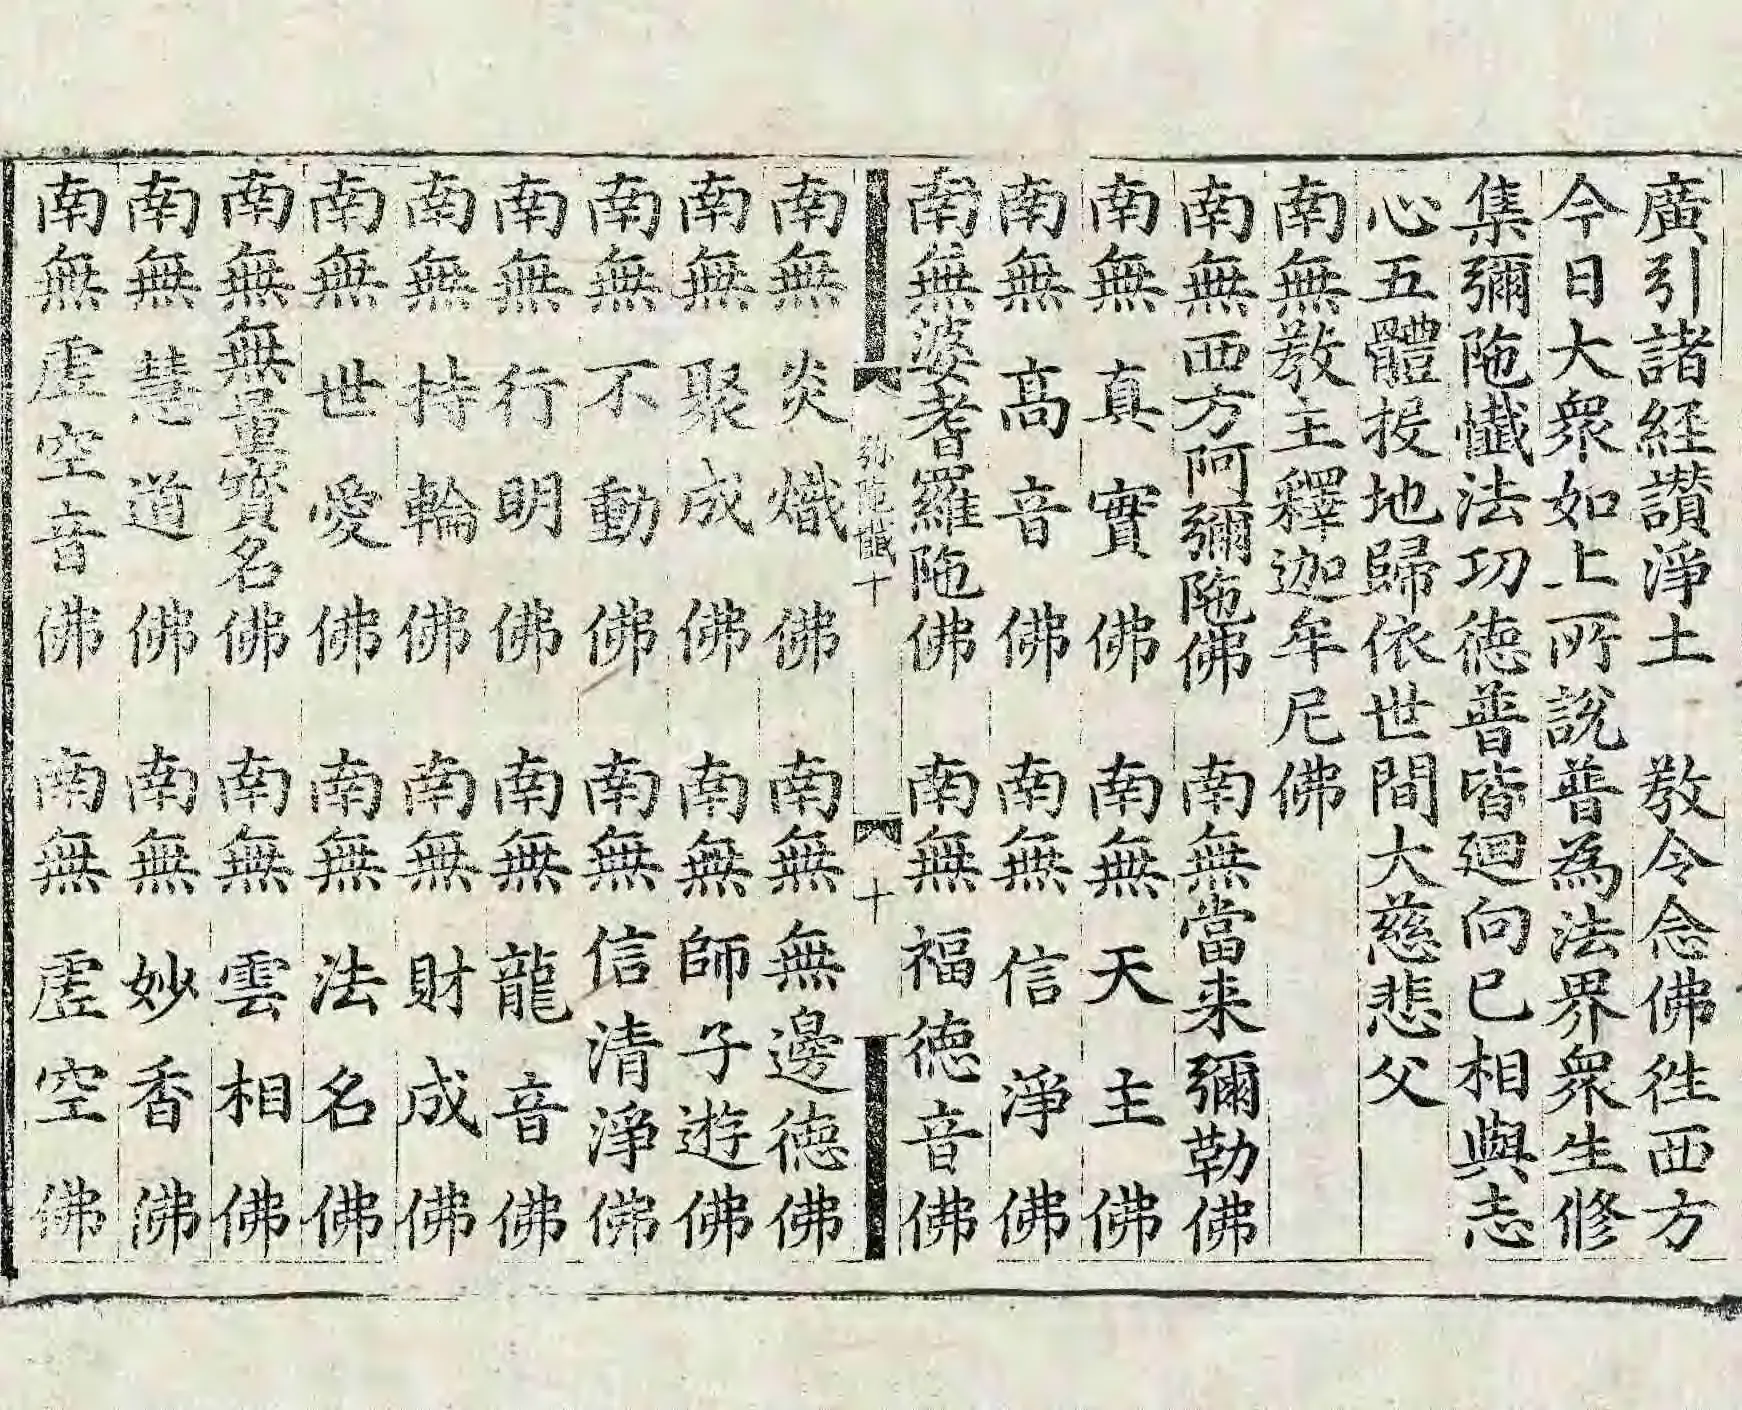 廣引諸經讃淨土　敎令念佛徃西方
今日大衆如上所說普為法界衆生修
集彌陁懺法功德普皆廻向已相與志
心五體投地歸依世間大慈悲父
南無敎主釋迦牟尼佛
南無西方阿彌陁佛　南無當来彌勒佛
南無真實佛　南無天主佛
南無高音佛　南無信淨佛
南無婆耆羅陁佛　南無福德音佛
弥陁懺十　十
南無炎熾佛　南無無邊德佛
南無聚成佛　南無師子遊佛
南無不動佛　南無信清淨佛
南無行明佛　南無龍音佛
南無持輪佛　南無財成佛
南無世愛佛　南無法名佛
南無無量寶名佛　南無雲相佛
南無慧道佛　南無妙香佛
南無虛空音佛　南無虛空佛